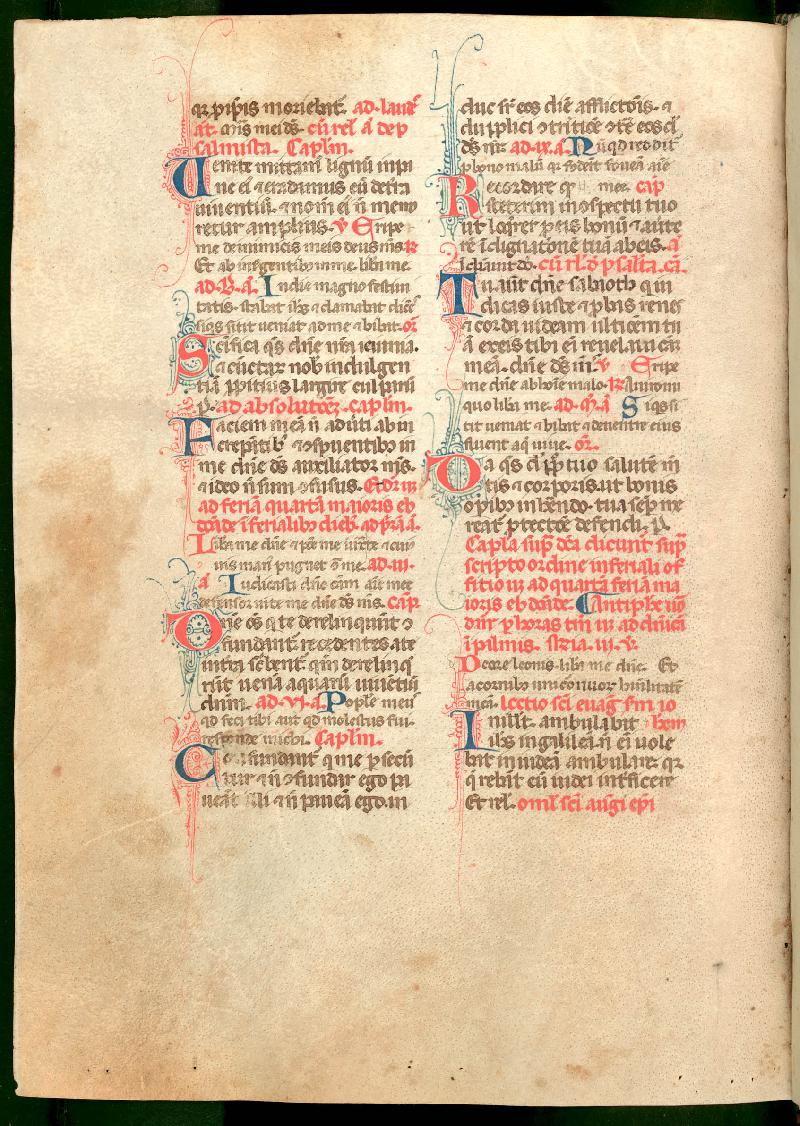 qr pip̄is moriebat̄. ad. laud̄
at. om̄s mei ds̄. cū rel̄. ā dep̄
salmista. Caplm̄.
Uenite mittam̄ lignū in pa
ne ei ⁊ eradamus eū de t̄ra
uiuentiū. ⁊ nom̄ ei⁹ n̄ memo
retur amplius. v̄ Eripe
me de inimicis meis deus m̄s. R
Et ab insurgentibus in me. lib̄a me.
ad. B. ā. In die magno festiui
tatis. stabat ih̄s ⁊ clamabat dicēs
siq̄s sitit ueniat ad me ⁊ bibat. or̄
Scīfica q̄s dn̄e nr̄a ieiunia.
⁊ cūctar̄ nob̄ indulgen
tiā p̄pitius largire culparū
p̄. ad absolutōꝫ. caplm̄.
Faciem meā n̄ aduti ab in
crepātib⁹ ⁊ ɔspuentibꝰ in
me dn̄e ds̄ auxiliator m̄s.
⁊ ideo n̄ sum ɔfusus. Et dr̄ in
ad feriā quartā maioris eb
domade ī ferialibꝰ dieb⁹. ad p̄mā ā.
Liba me dn̄e ⁊ pōe me iuxta te ⁊ cui
uis man⁹ pugnet ɔ̄ me. ad. iii.
ā Iudicasti dn̄e cām aīe mee
defensor uite me dn̄e ds̄ m̄s. cap̄.
Dn̄e om̄s q̄ te derelinquūt ɔ
fundant̄. recedentes a te
in t̄ra sc̄bent̄. qm̄ dereliq̄
rūt uenā aquarū uiuentiū
dn̄m. ad. vi. ā. Popl̄e meus
qd̄ feci tibi aut qd̄ molestus fui.
responde michi. Caplm̄.
Confundant̄ qui me p̄secū
tur ⁊ n̄ ɔfundar ego pa
ueāt illi ⁊ n̄ paueā ego. in
duc sr̄ eos diē afflictōis. ⁊
duplici ɔtritiōe ɔte᷑ eos dn̄
ds̄ nr̄. ad. ix. ā. Nūqd̄ reddit̄
p̄ bono malū qr̄ foderūt foueā aīe
Recordare qd̄ mee. cap̄
steterim in ɔspectu tuo
ut loq̄rer p̄ eis bonū ⁊ auerte
rē īdignatōnē tuā ab eis. ā
cū rl̄. d̄ psalīta. ca.
Tu aut̄ dn̄e sabaoth qui
iudicas iuste ⁊ p̄bas renes
⁊ corda uideam ultionem tu
ā ex eis tibi enī reuelaui cām
meā. dn̄e ds̄ m̄i. v̄ Eripe
me dn̄e ab hoīe malo. R A uiro ini
quo lib̄a me. ad. M. ā Siq̄s si
tit ueniat ⁊ bibat ⁊ de uentre eius
fluent aq̄ uiue. or̄.
Da q̄s dn̄e pp̄lo tuo salutē m̄
tis ⁊ corporis. ut bonis
opibꝰ inh̄endo. tua semp̄ me
reat̄ p̄tectōe defendi. p̄.
Capla sup̄ dc̄a dicunt̄ sup̄
scripto ordine in feriali of
fitio usq̄ ad quartā feriā ma
ioris ebdōade. Antiphe uō
dnr̄ p̄ horas tm̄ in ad dn̄icā
ī palmis. feria. iii. v̄.
De ore leonis. lib̄a me dn̄e. Et
a cornibꝰ unicornuor̄ humilitatē
meā. lectio sc̄i euāg. sm̄ io
In illo t̄. ambulabat hem
ih̄s in galileā. n̄ enī uole
bat in iudeā ambulare. qr̄
q̄rebāt eū iudei intfice̅re
Et rel̄. omł sc̄i augi ep̄i